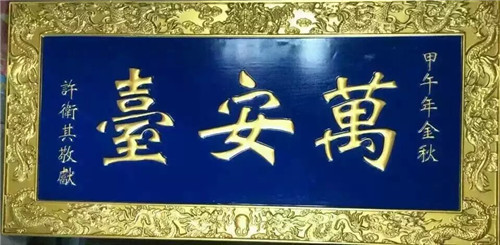 甲午年金秋
萬安臺
許衛其敬獻